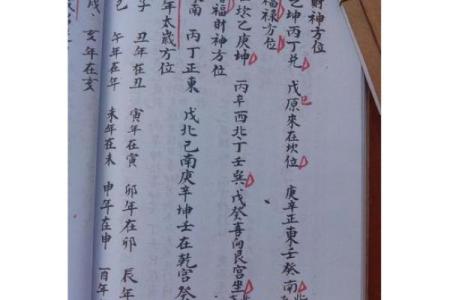 財神方位
乙坤丙丁兌 戊原來在坎位 庚辛正東壬癸南
福祿方位
在坎乙庚坤 丙辛西北丁壬巽戊癸喜向艮宮坐
福財神方位
南 丙丁正東 戊北己南庚辛坤壬在乾宮癸
年太歲方位
子 丑年在丑 寅年在寅 卯年在卯 辰年
巳 午年在午 未年在未 申年在申 酉年
戌、亥年在亥